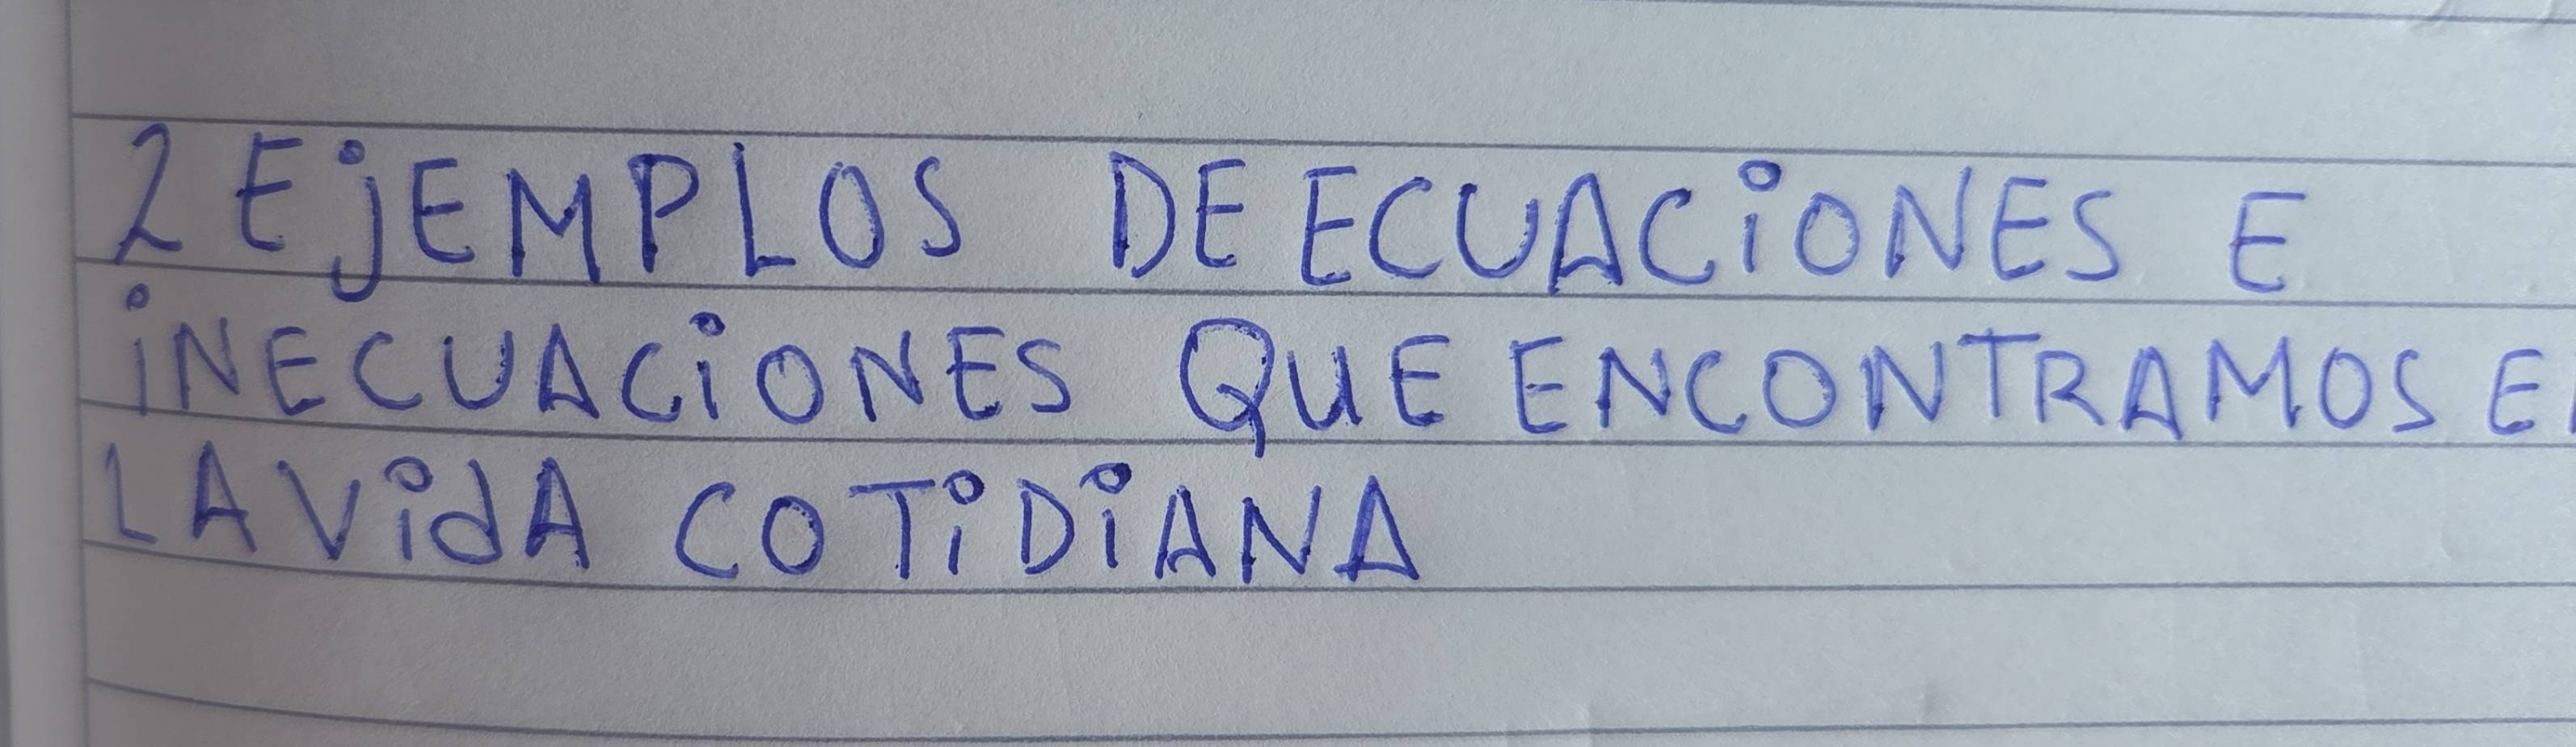 2 EjEMPLOS DE ECUACiONES E
iNECUACiONES QUE ENCONTRAMOS
LA VidA COTiDiANA